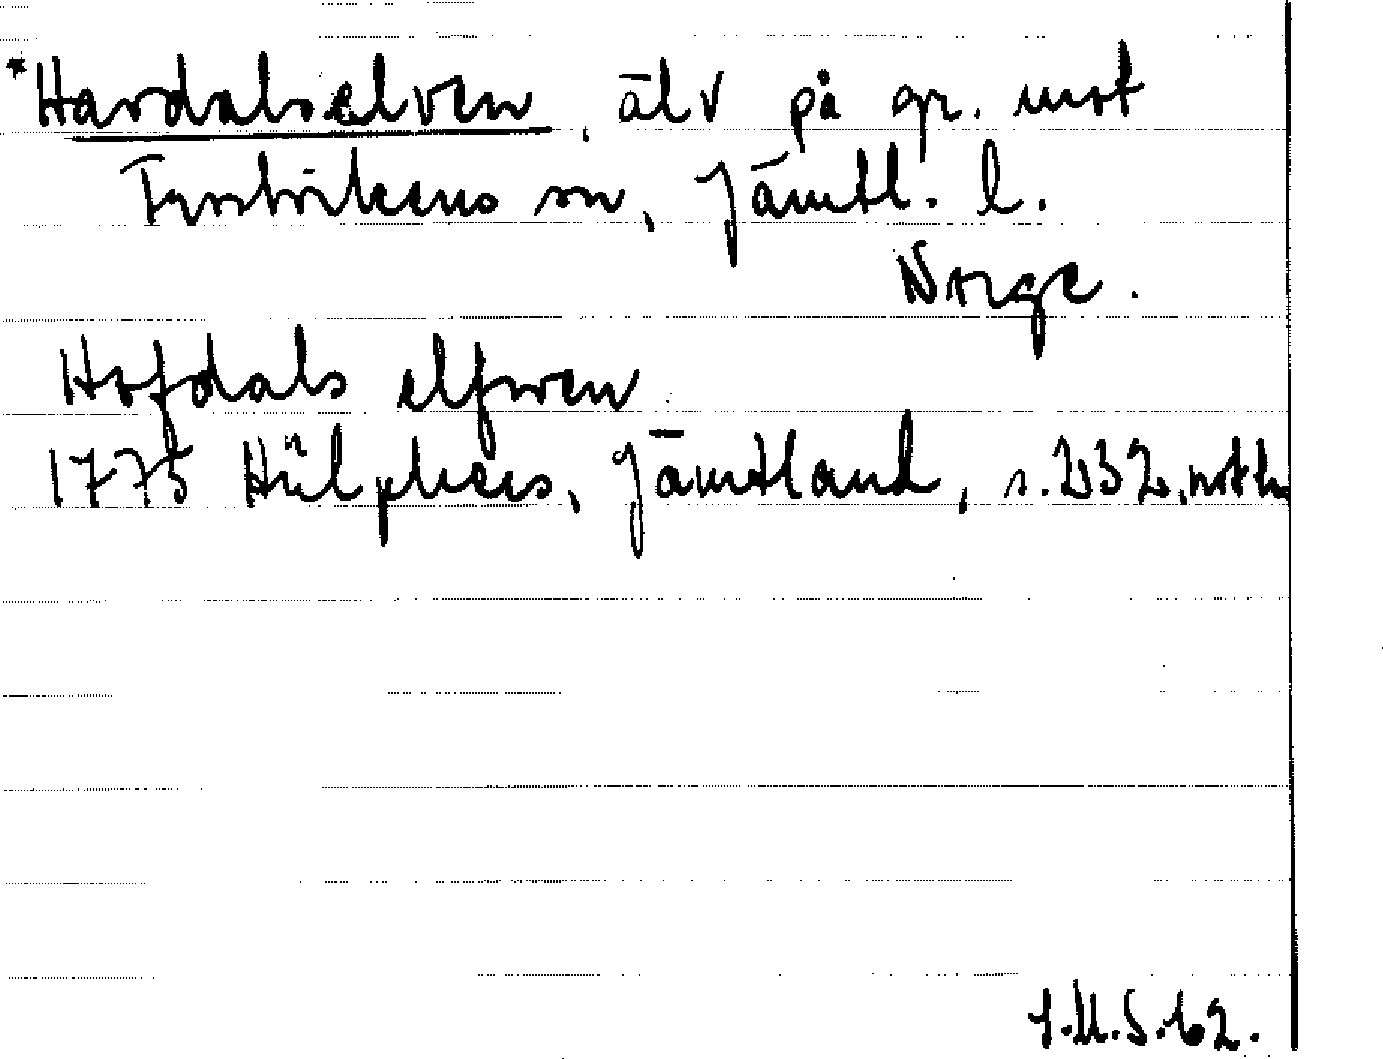 *Havdalselven, älv på gr. mot
Frostvikens sn, Jämtl. l.
Norge.
Hofdals elfwen
1775 Hülphers, Jämtland, s. 232, noth